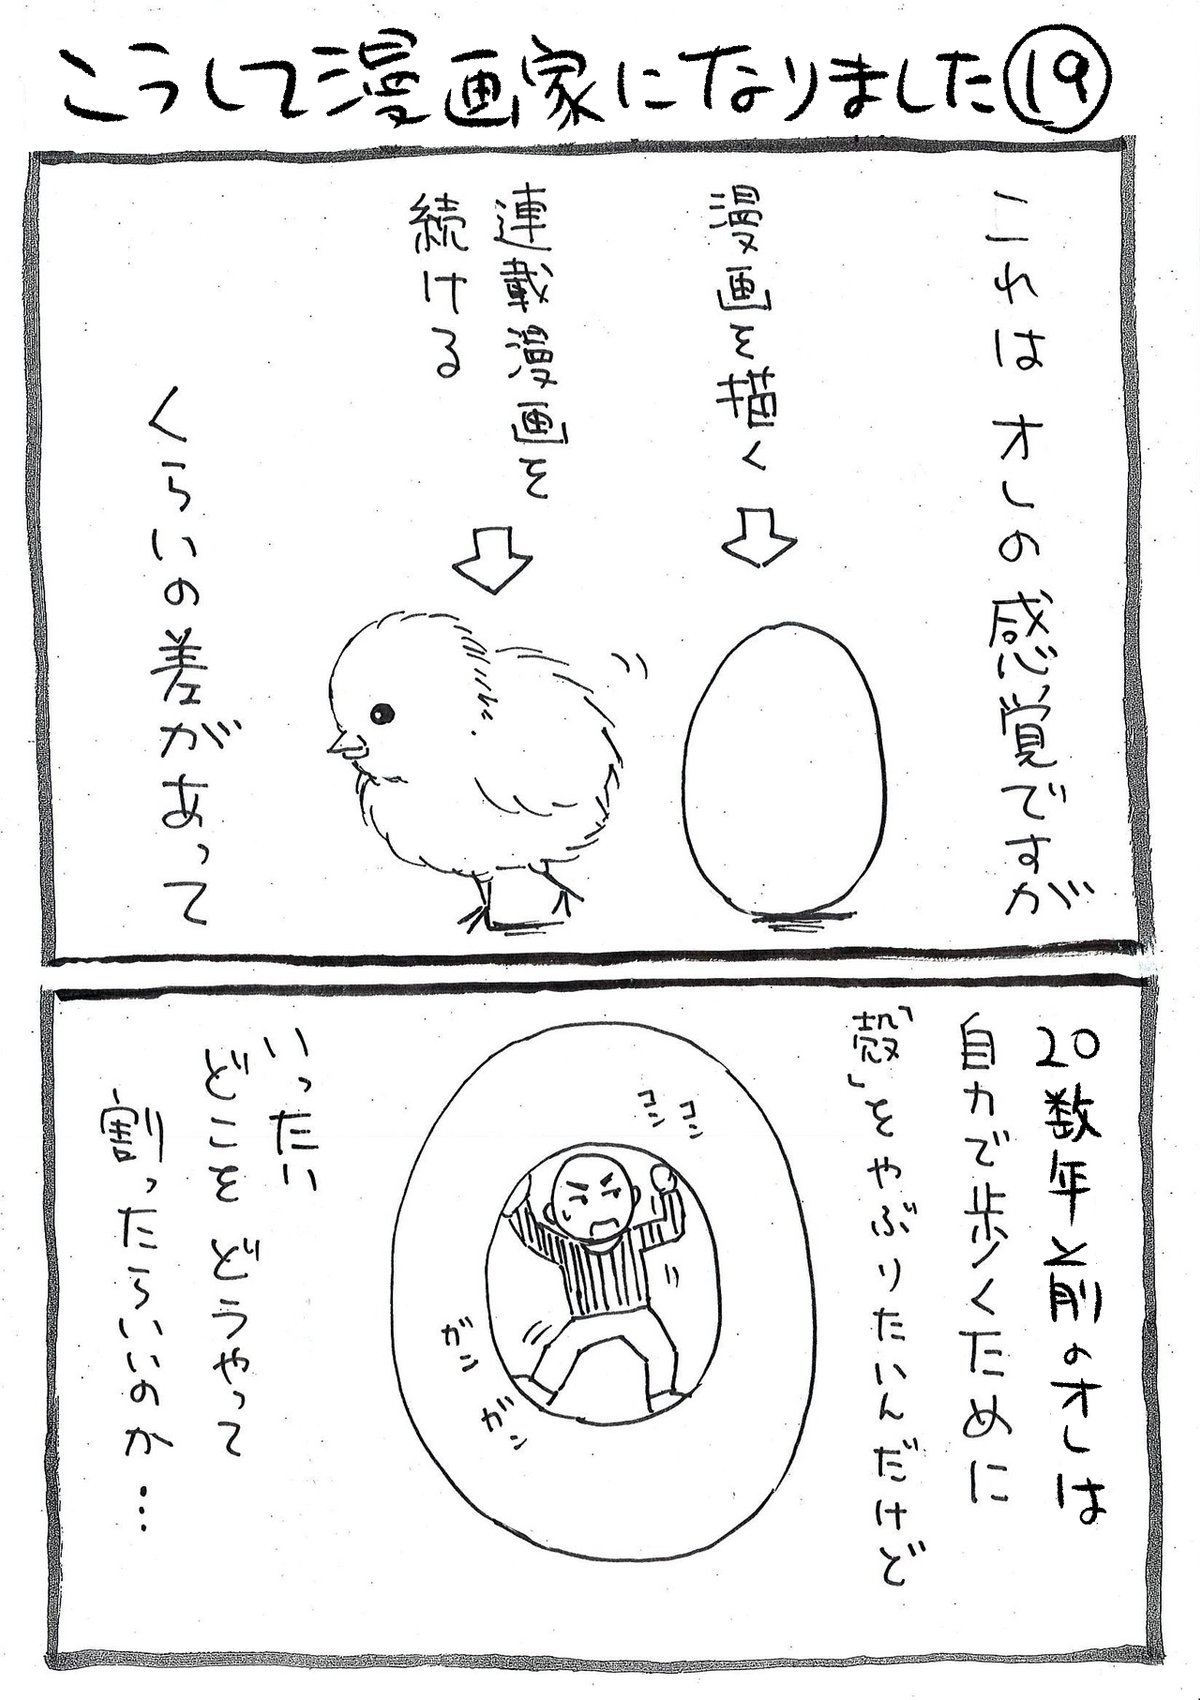 こうして漫画家になりました⑲
これは オレの感覚ですが
漫画を描く
連載漫画を
続ける
くらいの差があって
20数年と前のオレは
自力で歩くために
「殻」をやぶりたいんだけど
コンコン
ガンガン
いったい
どこを どうやって
割ったらいいのか…